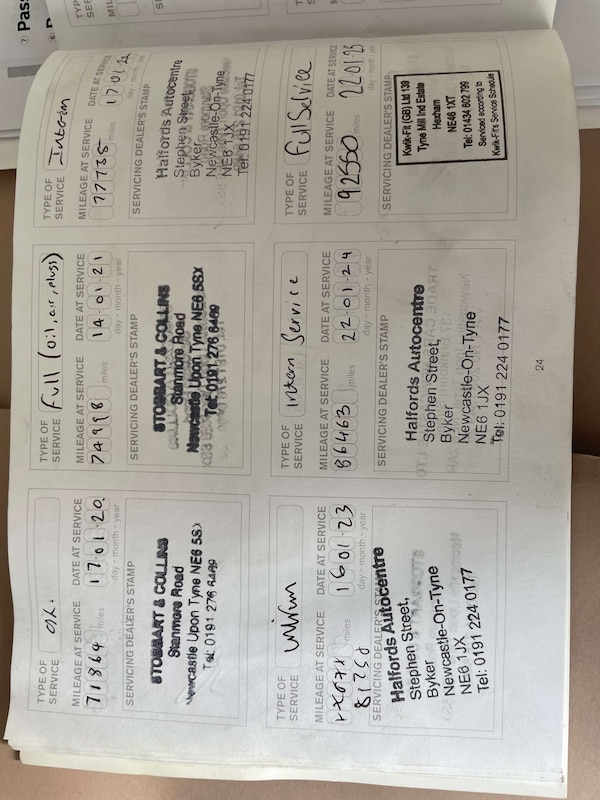 TYPE OF SERVICE oil.
MILEAGE AT SERVICE DATE AT SERVICE
71864 miles 17.01.20
day - month - year
SERVICING DEALER'S STAMP
STOBBART & COLLINS
Stanmore Road
Newcastle Upon Tyne NE6 5SX
Tel: 0191 276 6469
TYPE OF SERVICE Full (oil, air, plugs)
MILEAGE AT SERVICE DATE AT SERVICE
74998 miles 14.01.21
day - month - year
SERVICING DEALER'S STAMP
STOBBART & COLLINS
Stanmore Road
Newcastle Upon Tyne NE6 5SX
Tel: 0191 276 6469
TYPE OF SERVICE Interim
MILEAGE AT SERVICE DATE AT SERVICE
77735 miles 17.01.22
day - month
SERVICING DEALER'S STAMP
Halfords Autocentre
Stephen Street,
Byker
Newcastle-On-Tyne
NE6 1JX
Tel: 0191 224 0177
TYPE OF SERVICE
MILEAGE AT SERVICE DATE AT SERVICE
miles 16.01.23
day - month - year
81750
SERVICING DEALER'S STAMP
Halfords Autocentre
Stephen Street,
Byker
Newcastle-On-Tyne
NE6 1JX
Tel: 0191 224 0177
TYPE OF SERVICE Interim Service
MILEAGE AT SERVICE DATE AT SERVICE
86463 miles 22.01.24
day - month - year
SERVICING DEALER'S STAMP
Halfords Autocentre
Stephen Street,
Byker
Newcastle-On-Tyne
NE6 1JX
Tel: 0191 224 0177
TYPE OF SERVICE Full Service
MILEAGE AT SERVICE DATE AT SERVICE
92550 miles 22.01.25
day - month - year
SERVICING DEALER'S STAMP
Kwik-Fit (GB) Ltd 139
Tyne Mill Ind Estate
Hexham
NE46 1XT
Tel: 01434 602 799
Serviced according to
Kwik-Fit's Service Schedule
24